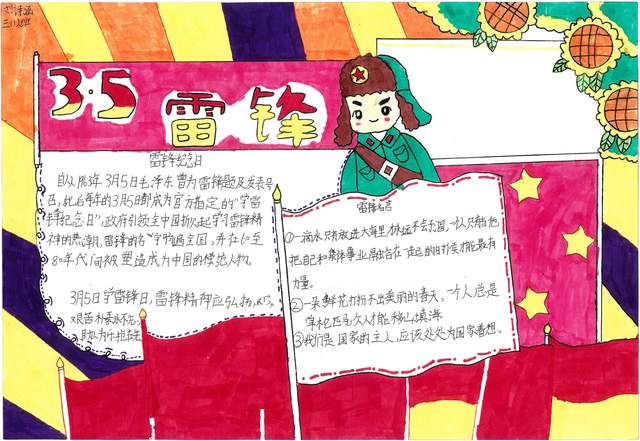 三(
3.5
雷锋
雷锋纪念日
自从1963年3月5日毛泽东曾为雷锋题及发表号
召,此后每年的3月5日都成为官方指定的"学雷
锋纪念日",政府引领全中国掀起学习雷锋精
神的热潮,雷锋的名字响遍全国,并在60至
80年代间被塑造成为中国的模范人物。
3月5日学雷锋日,雷锋精神应弘扬,
艰苦朴素永不忘,
助人为
雷锋名言
①一滴水只有放进大海里,才永远不会干涸,一个人只有当他
把自己和集体事业 在一起的时候才能最有
力量。
②一朵鲜花打扮不出美丽的春天,一个人总是
单枪匹马,众人才能移山填海
③我们是国家的主人,应该处处为国家着想。